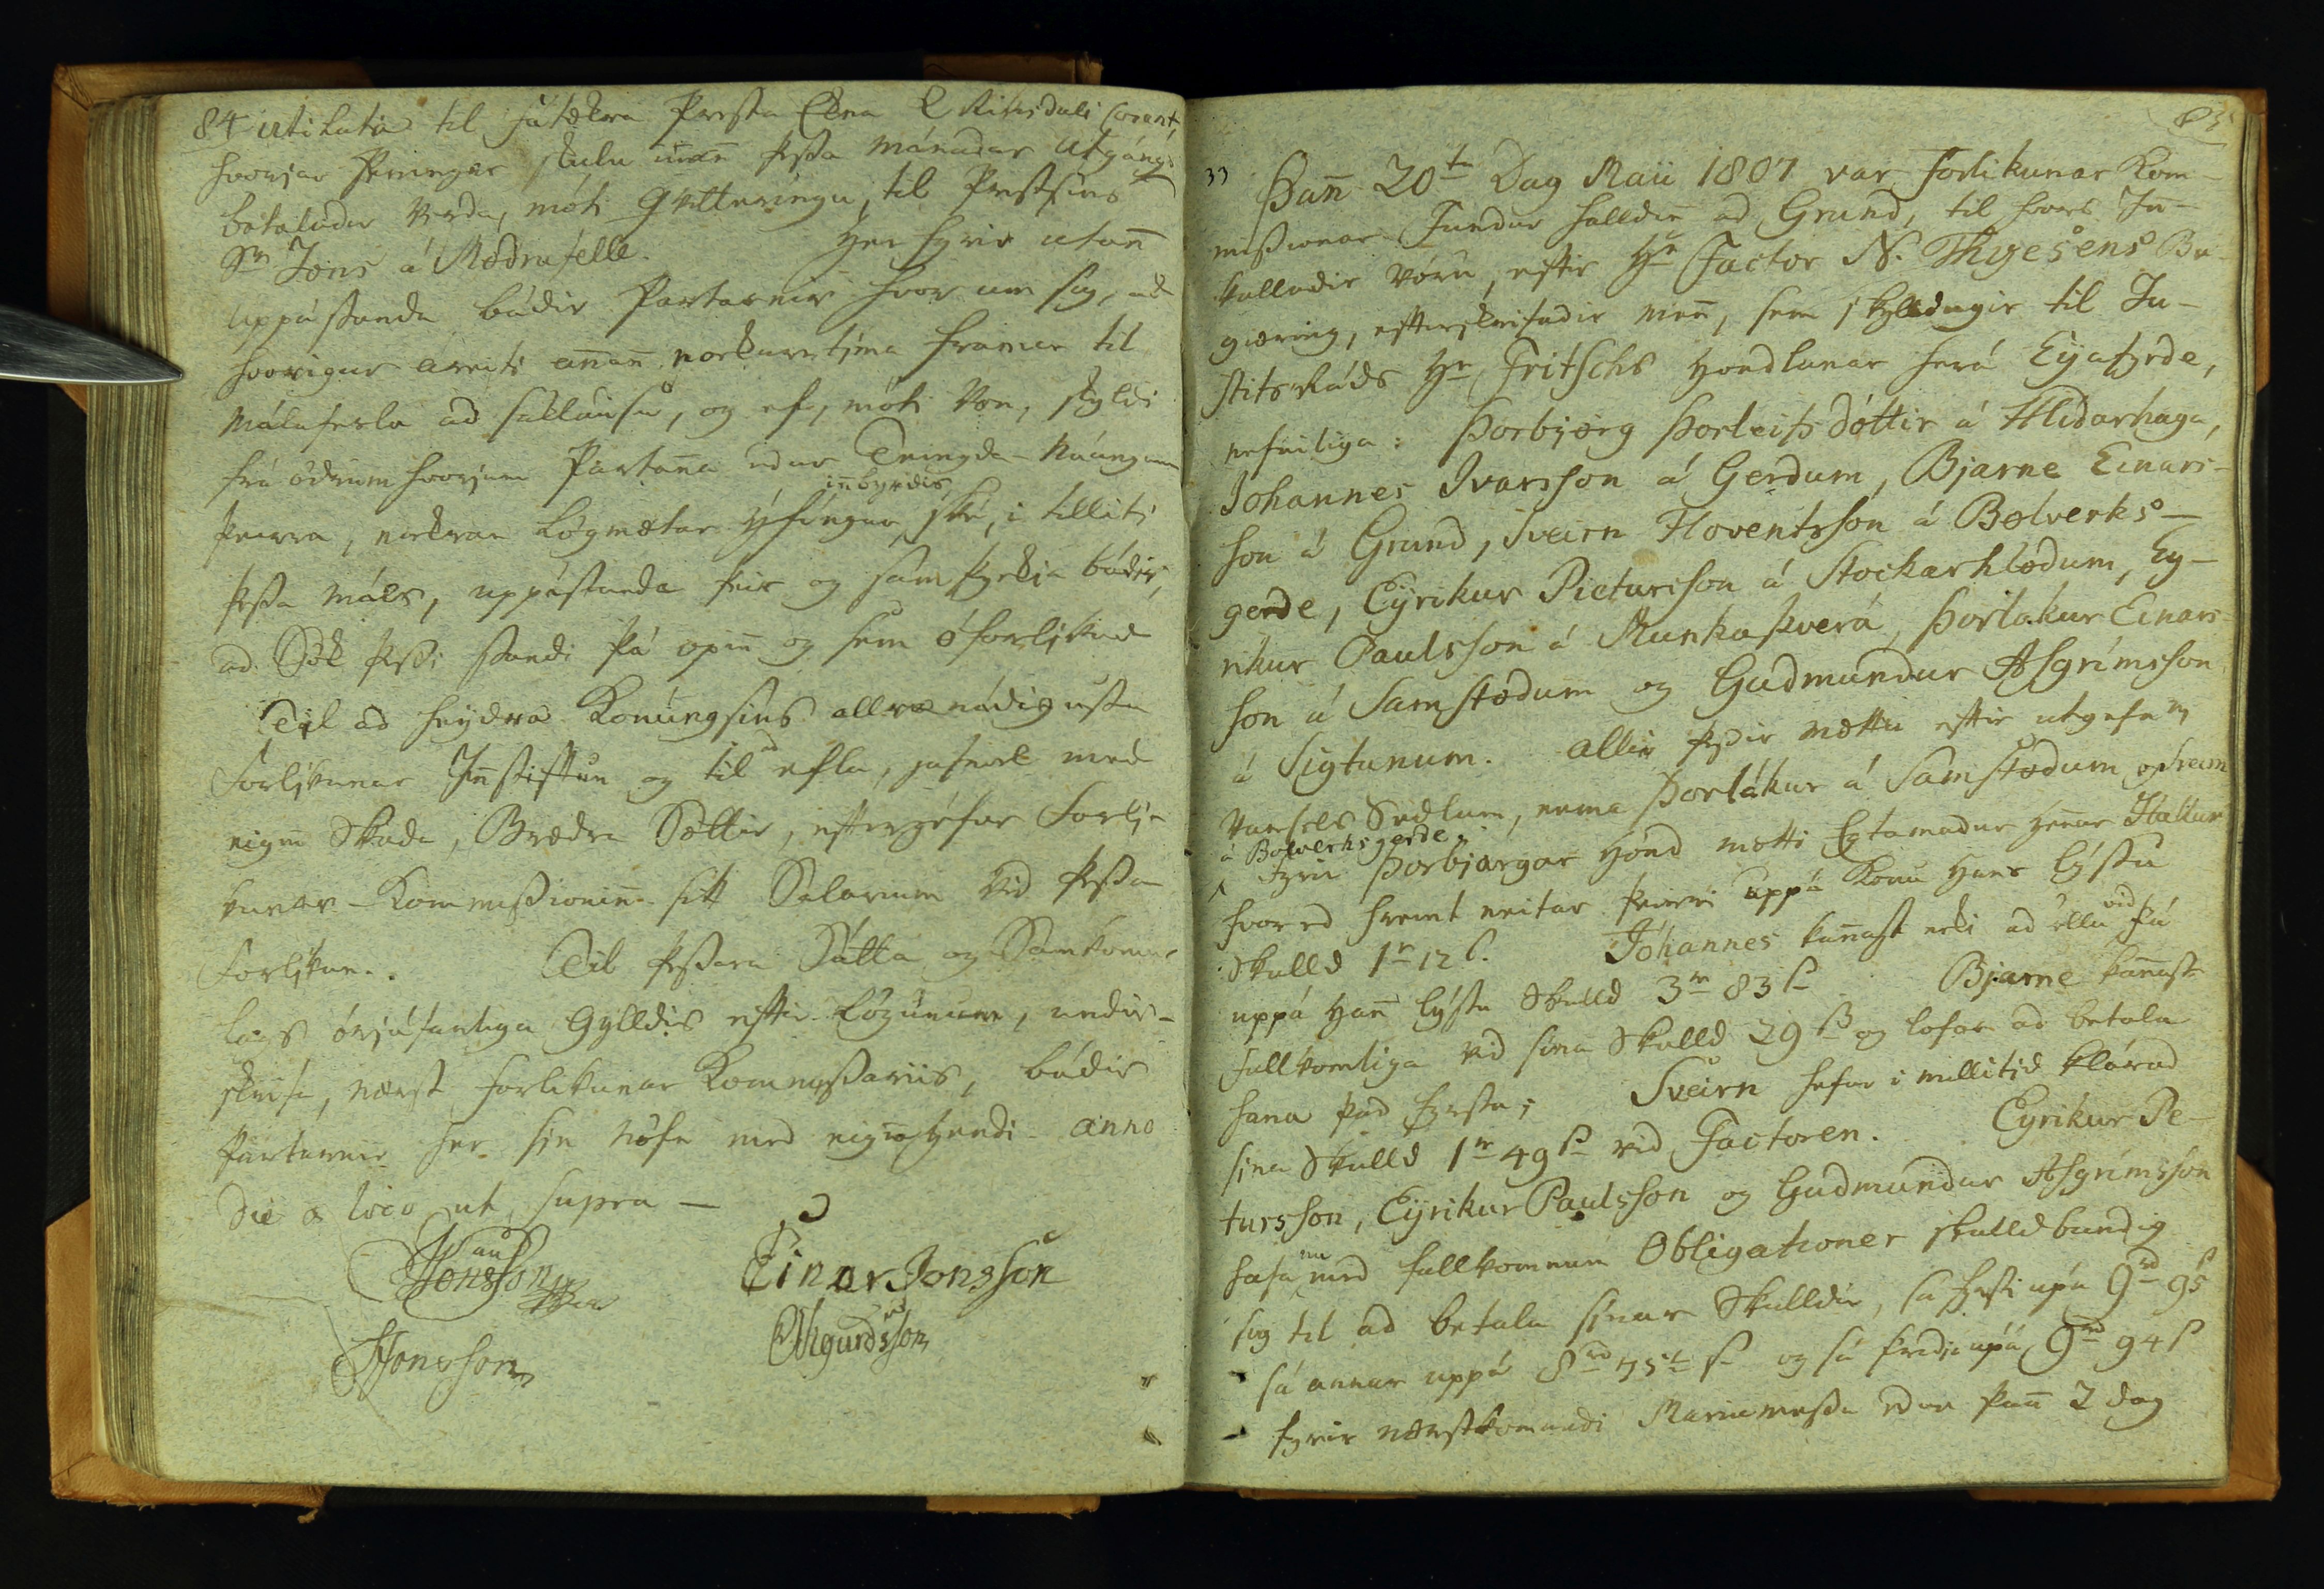 84 utiláta til fátækra Presta Ekna 2 Rikisdali Corant,
hvorjar Peningar skulu innan þessa mánadar Utgángs
betaladir verda, móti Qvitteringu, til Prestsins
Sr Jons á Mödrufelle. Her fyrir utann
uppástanda bádir Partarnir hvor um sig, ad
hvorigur áreiti annann nockurntima framar til
málaferla ad saklausu, og ef, móti Von, skyldi
frá ödrum hvorjum Partanna edur Teingda-Náungum
þeirra, nockrar lögmætar ýfingar innbyrdis ske, i tilliti
þessa máls, uppástanda þeir og samþyckia bádir,
ad Sök þessi standi þá opin og sem óforlikud
Til ad heydra Konungsins allranádugustu
Forlikunar Innstiftun og til ad efla, jafnvel med
eigin Skada, Brædra Sættir, eftergefur Forli-
kunar-Kommissionin sitt Salarium vid þessa
Forlikun. Til þessara Sátta og Samkomu-
lags órjúfanliga Gylldis eftir Lögunum, undir-
skrifa, næst Forlikunar Kommissariis, bádir
Partarnir her sin Nöfn med eiginnhendi anno
die & loco ut supra —
Jonsson Einar Jonsson
JJonsson Sigurdsson
85
33 Þann 20ta Dag Maii 1807 var Forlikunar Kom-
missionar Fundur halldinn ad Grund, til hvors In-
kalladir vóru, eftir Hr Factor N. Thyesens Be-
giæring, efterskrifadir menn, sem skylldugir til Ju-
stitsRáds Hr Fritschs Hondlunar herá Eyafyrde,
nefniliga: Þorbjörg Þorleifsdóttir á Hlidarhaga,
Johannes Ivarsson á Gerdum, Bjarne Einars-
son á Grund, Sveirn Floventsson á Bolverks-
gerde, Eyrikur Pietursson á Stockarhlodum, Ey-
rikur Paulsson á Munkaþverá, Þorlakur Einars-
son á Samstodum og Gudmundur Asgrimsson
á Sigtunum. Allir þessir mættu eftir utgefnum
Kansels Sedlum, nema Þorlákur á Samstodum, og Sveirn
á Bolverksgerde.
Fyrir Þorbjargar Hönd mætti Egtamadur hennar Hallur
hvored hreint neitar þeirri uppá Konu hans lýstu
Skulld 1r 12 s. Jóhannes kannast ecki ad öllu vid þá
uppá hann lýstu Skulld 3r 83 s Bjarne kannast
fullkomliga vid sina Skulld 29 s og lofar ad betala
hana þad fyrsta; Sveirn hefur i millitid klárad
sina Skulld 1r 49 s vid Factoren. Eyrikur Pe-
tursson, Eyrikur Paulsson og Gudmundur Asgrimsson
hafa nu med fullkomnum Obligationer skulldbundig
sig til ad betala sinar Skulldir, sá fyrsti upá 9rd 95
sá annar uppá 8rd 75 s og sá þridie upá 9rd 94 s
fyrir næstkomandi Mariumessu edur þann 2 dag